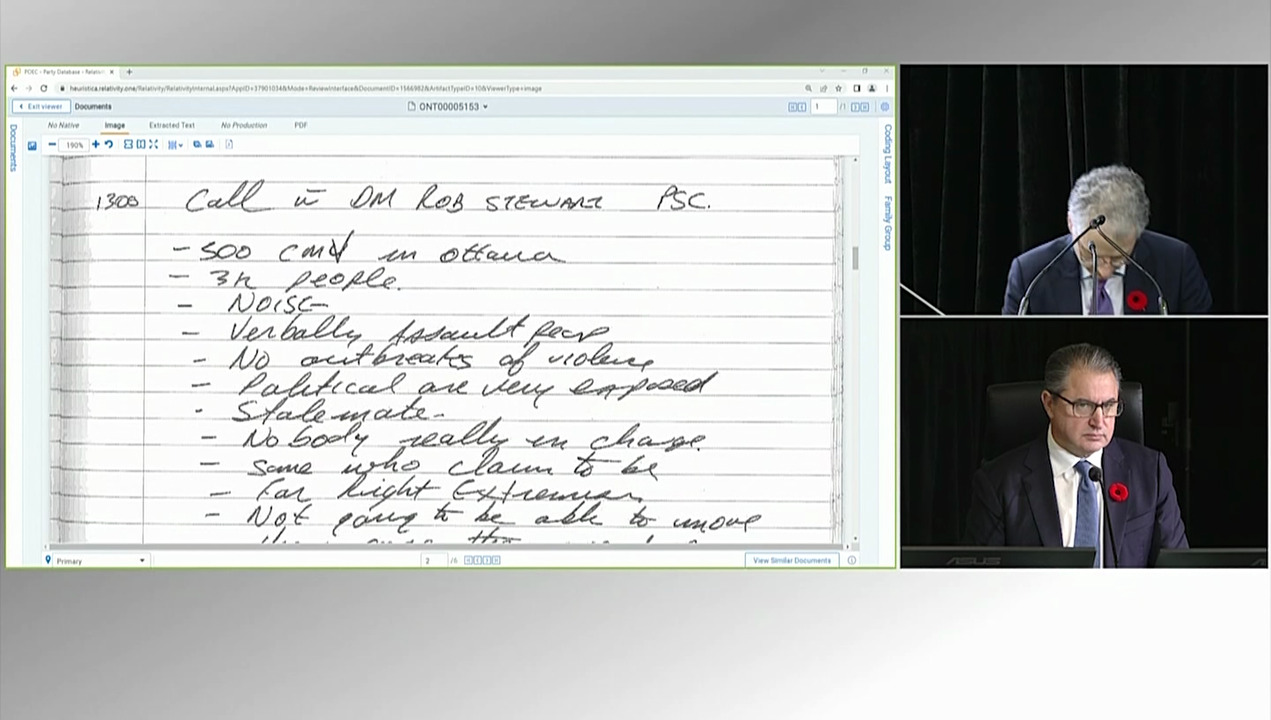 POEC - Party Database - Relativi
heuristica.relativity.one/Relativity/RelativityInternal.aspx?AppID=37901034&Mode=ReviewInterface&DocumentID=1566982&ArtifactTypeID=10&ViewerType=image
Exit viewer Documents
ONT00005153
1 /1
No Native Image Extracted Text No Production PDF
190%
Documents
Coding Layout Family Group
1300 Call w̄ DM ROB STEWART PSC.
- 500 CMV in Ottawa
- 3K people.
- NOISE
- Verbally Assault
- No outbreaks of violence
- Political are very exposed
- Stalemate.
- Nobody really in charge.
- some who claim to be
- Far Right Extremism
- Not going to be able to move
Primary
2 /6
View Similar Documents
ASUS